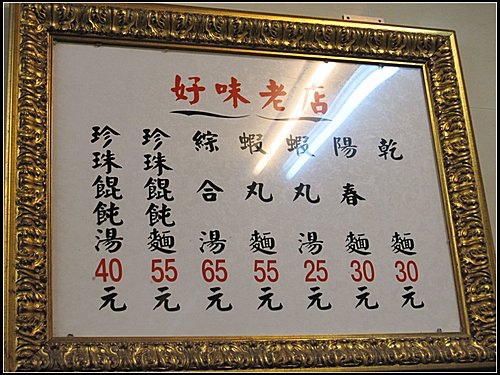 好味老店
乾麵30元
陽春麵30元
蝦丸湯25元
蝦丸麵55元
綜合湯65元
珍珠餛飩麵55元
珍珠餛飩湯40元